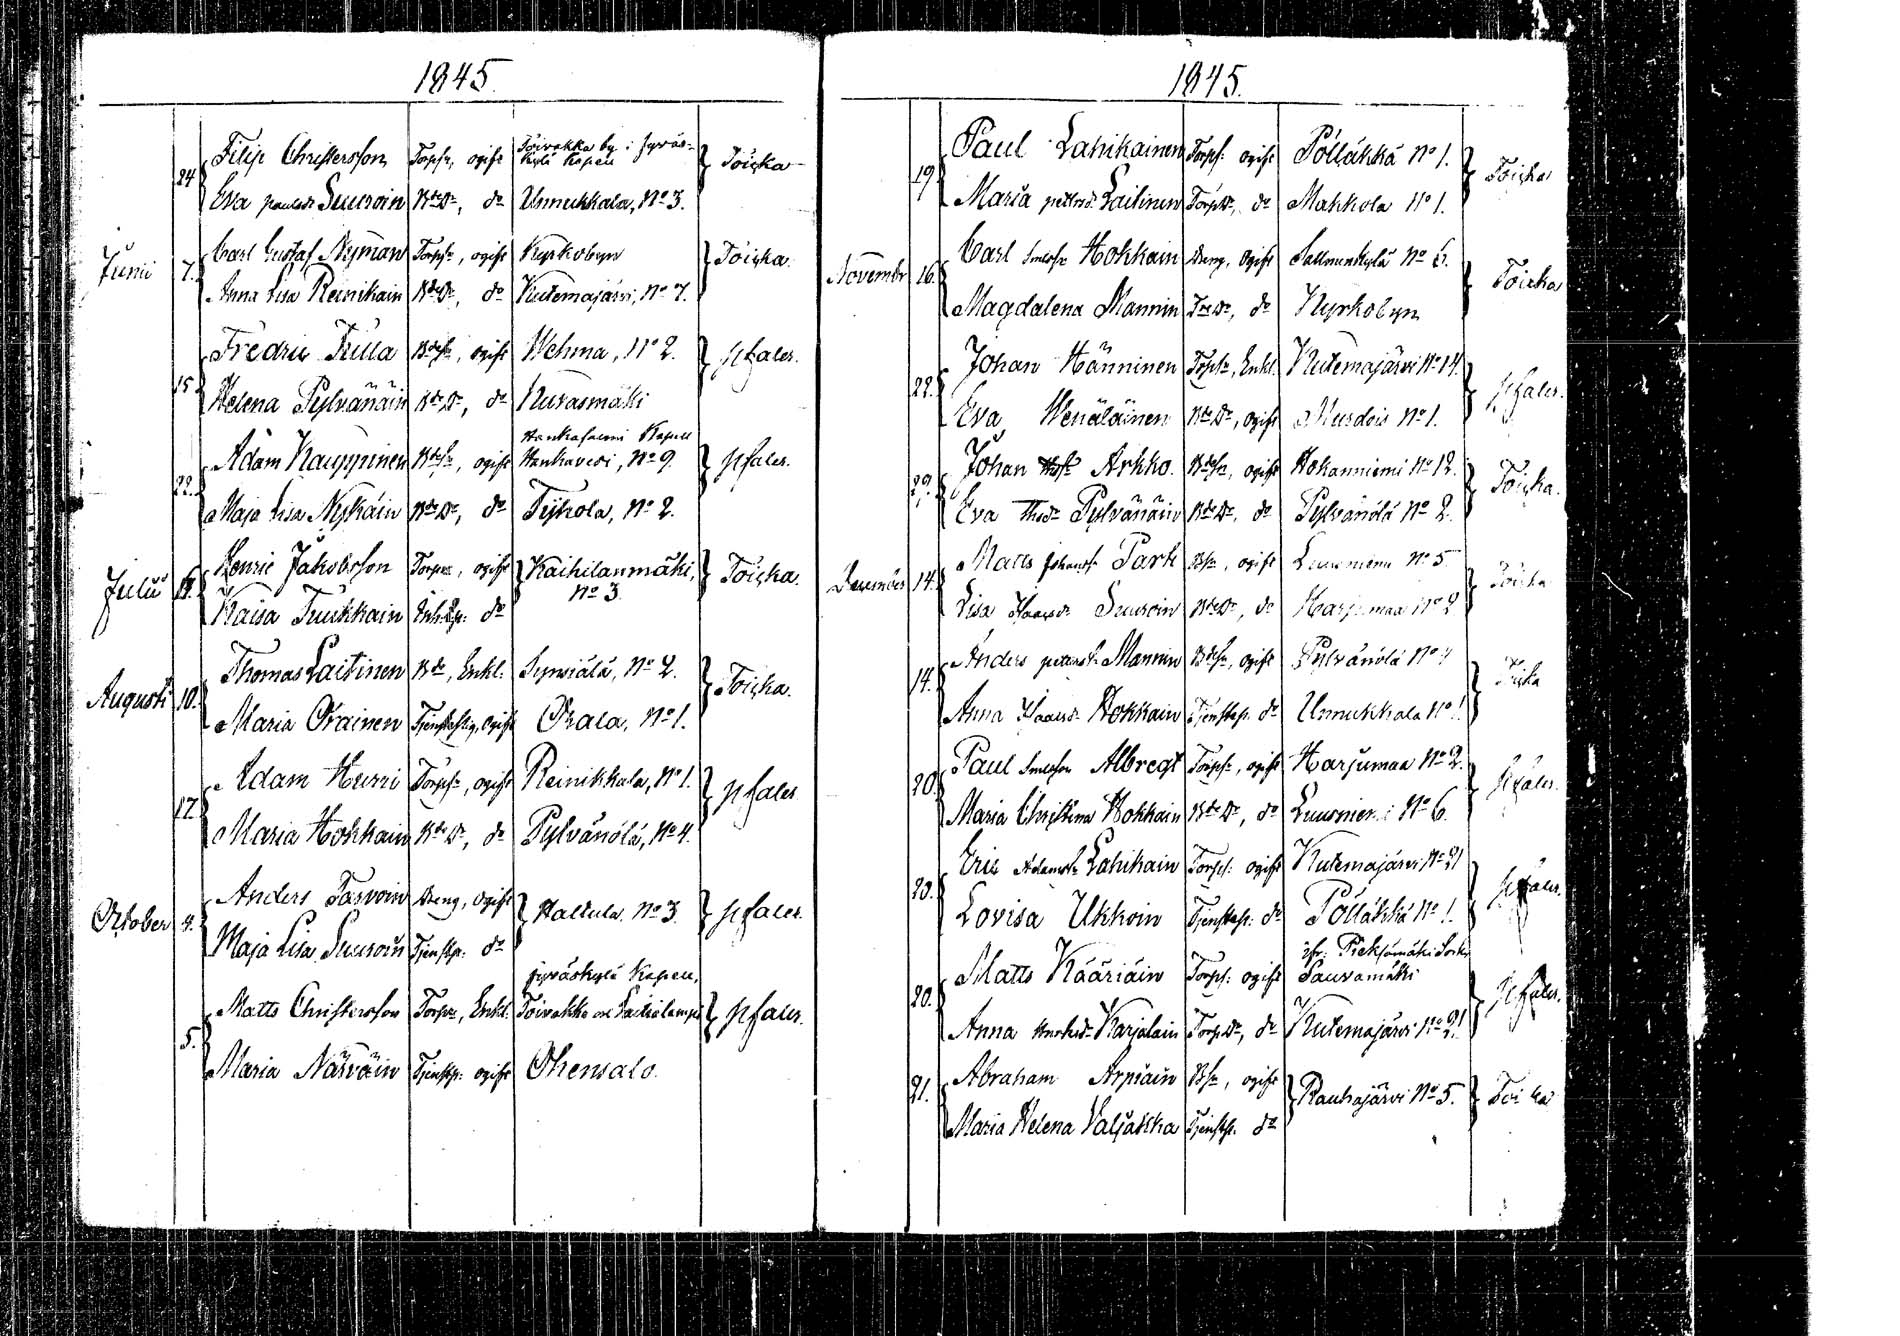 1845.
24 Filip Christersson Torpsn, ogift Toivakka by i Jyväs-
kylä Kapell Toiska
Eva paulsdr Suuroin BdeDr, do Unnukkala, No 3.
Junii 7. Carl Gustaf Nyman Torpsn, ogift Kyrkobyn Toiska.
Anna Lisa Reinikain BdeDr, do Kutemajärvi, No 7.
15 Fredric Tulla Bdesn, ogift Wehma, No 2. psaler.
Helena Pylvänäin BdeDr, do Kuvasmäki
22. Adam Kauppinen Bdesn, ogift Hankasalmi Kapell
Hankavesi, No 9. psaler.
Maja Lisa Nykäin BdeDr, do Tykola, No 2.
Julii Henric Jakobsson Torpare, ogift Kaihilanmäki, Toiska.
No 3.
Kaisa Turkkain do
Augusti 10. Thomas Laitinen Bde, Enkl. Synsiälä, No 2. Toiska.
Maria Orainen ogift Orala, No 1.
17. Adam Hurri Torpsn, ogift Reinikkala, No 1. psaler
Maria Hokkain BdeDr, do Pylvänölä, No 4.
October 4. Anders Tarvoin Dreng, ogift Hallula No 3. psaler
Maja Lisa Suuroin Tjenstep. do
5. Matts Christersson Torpare, Enkl. Jyväskylä Kapell,
Toivakka psaler.
Maria Närväin Tjenstep. ogift Ohensalo.
1845.
19 Paul Lahikainen Torps. ogift Pölläkkä No 1. Toiska
Maria pettersdr Laitinen TorpDr, do Mahkola No 1.
November 16. Carl Hokkain Dreng, ogift No 6. Toiska
Magdalena Mannin do Kyrkobyn
22. Johan Hänninen Torpsn, Enkl. Kutemajärvi No 14. psaler.
Eva Wenäläinen BdeDr, ogift No 1.
29. Johan Arkko. Bdesn, ogift Hokanniemi No 12. Toiska.
Eva Thsdr Pylvänäin BdeDr, do Pylvänölä No 2.
December 14. Matts Johanss. Park Bsn, ogift No 5 Toiska
Lisa Suuroin BdeDr, do Harjumaa No 2
14. Anders petterss. Mannin Bdesn, ogift Pylvänölä No 4 Toiska
Anna Hokkain Tjenstep. do Unnukkala No 1.
20. Paul Albregt Torpsn, ogift Harjumaa No 2. psaler.
Maria Christina Hokkain BdeDr, do No 6.
20. Eric Adamss. Lahikain Torps. ogift Kutemajärvi No 21 psaler.
Lovisa Ukkoin Tjenstep. do Pölläkkä No 1.
20. Matts Kääriäin Torps. ogift Pieksämäki Sockn
Sauvamäki psaler.
Anna Karjalain TorpDr, do Kutemajärvi No 21
21. Abraham Arpiain Bsn, ogift Rauhajärvi No 5. Toiska
Maria Helena Valjakka Tjenstp. do